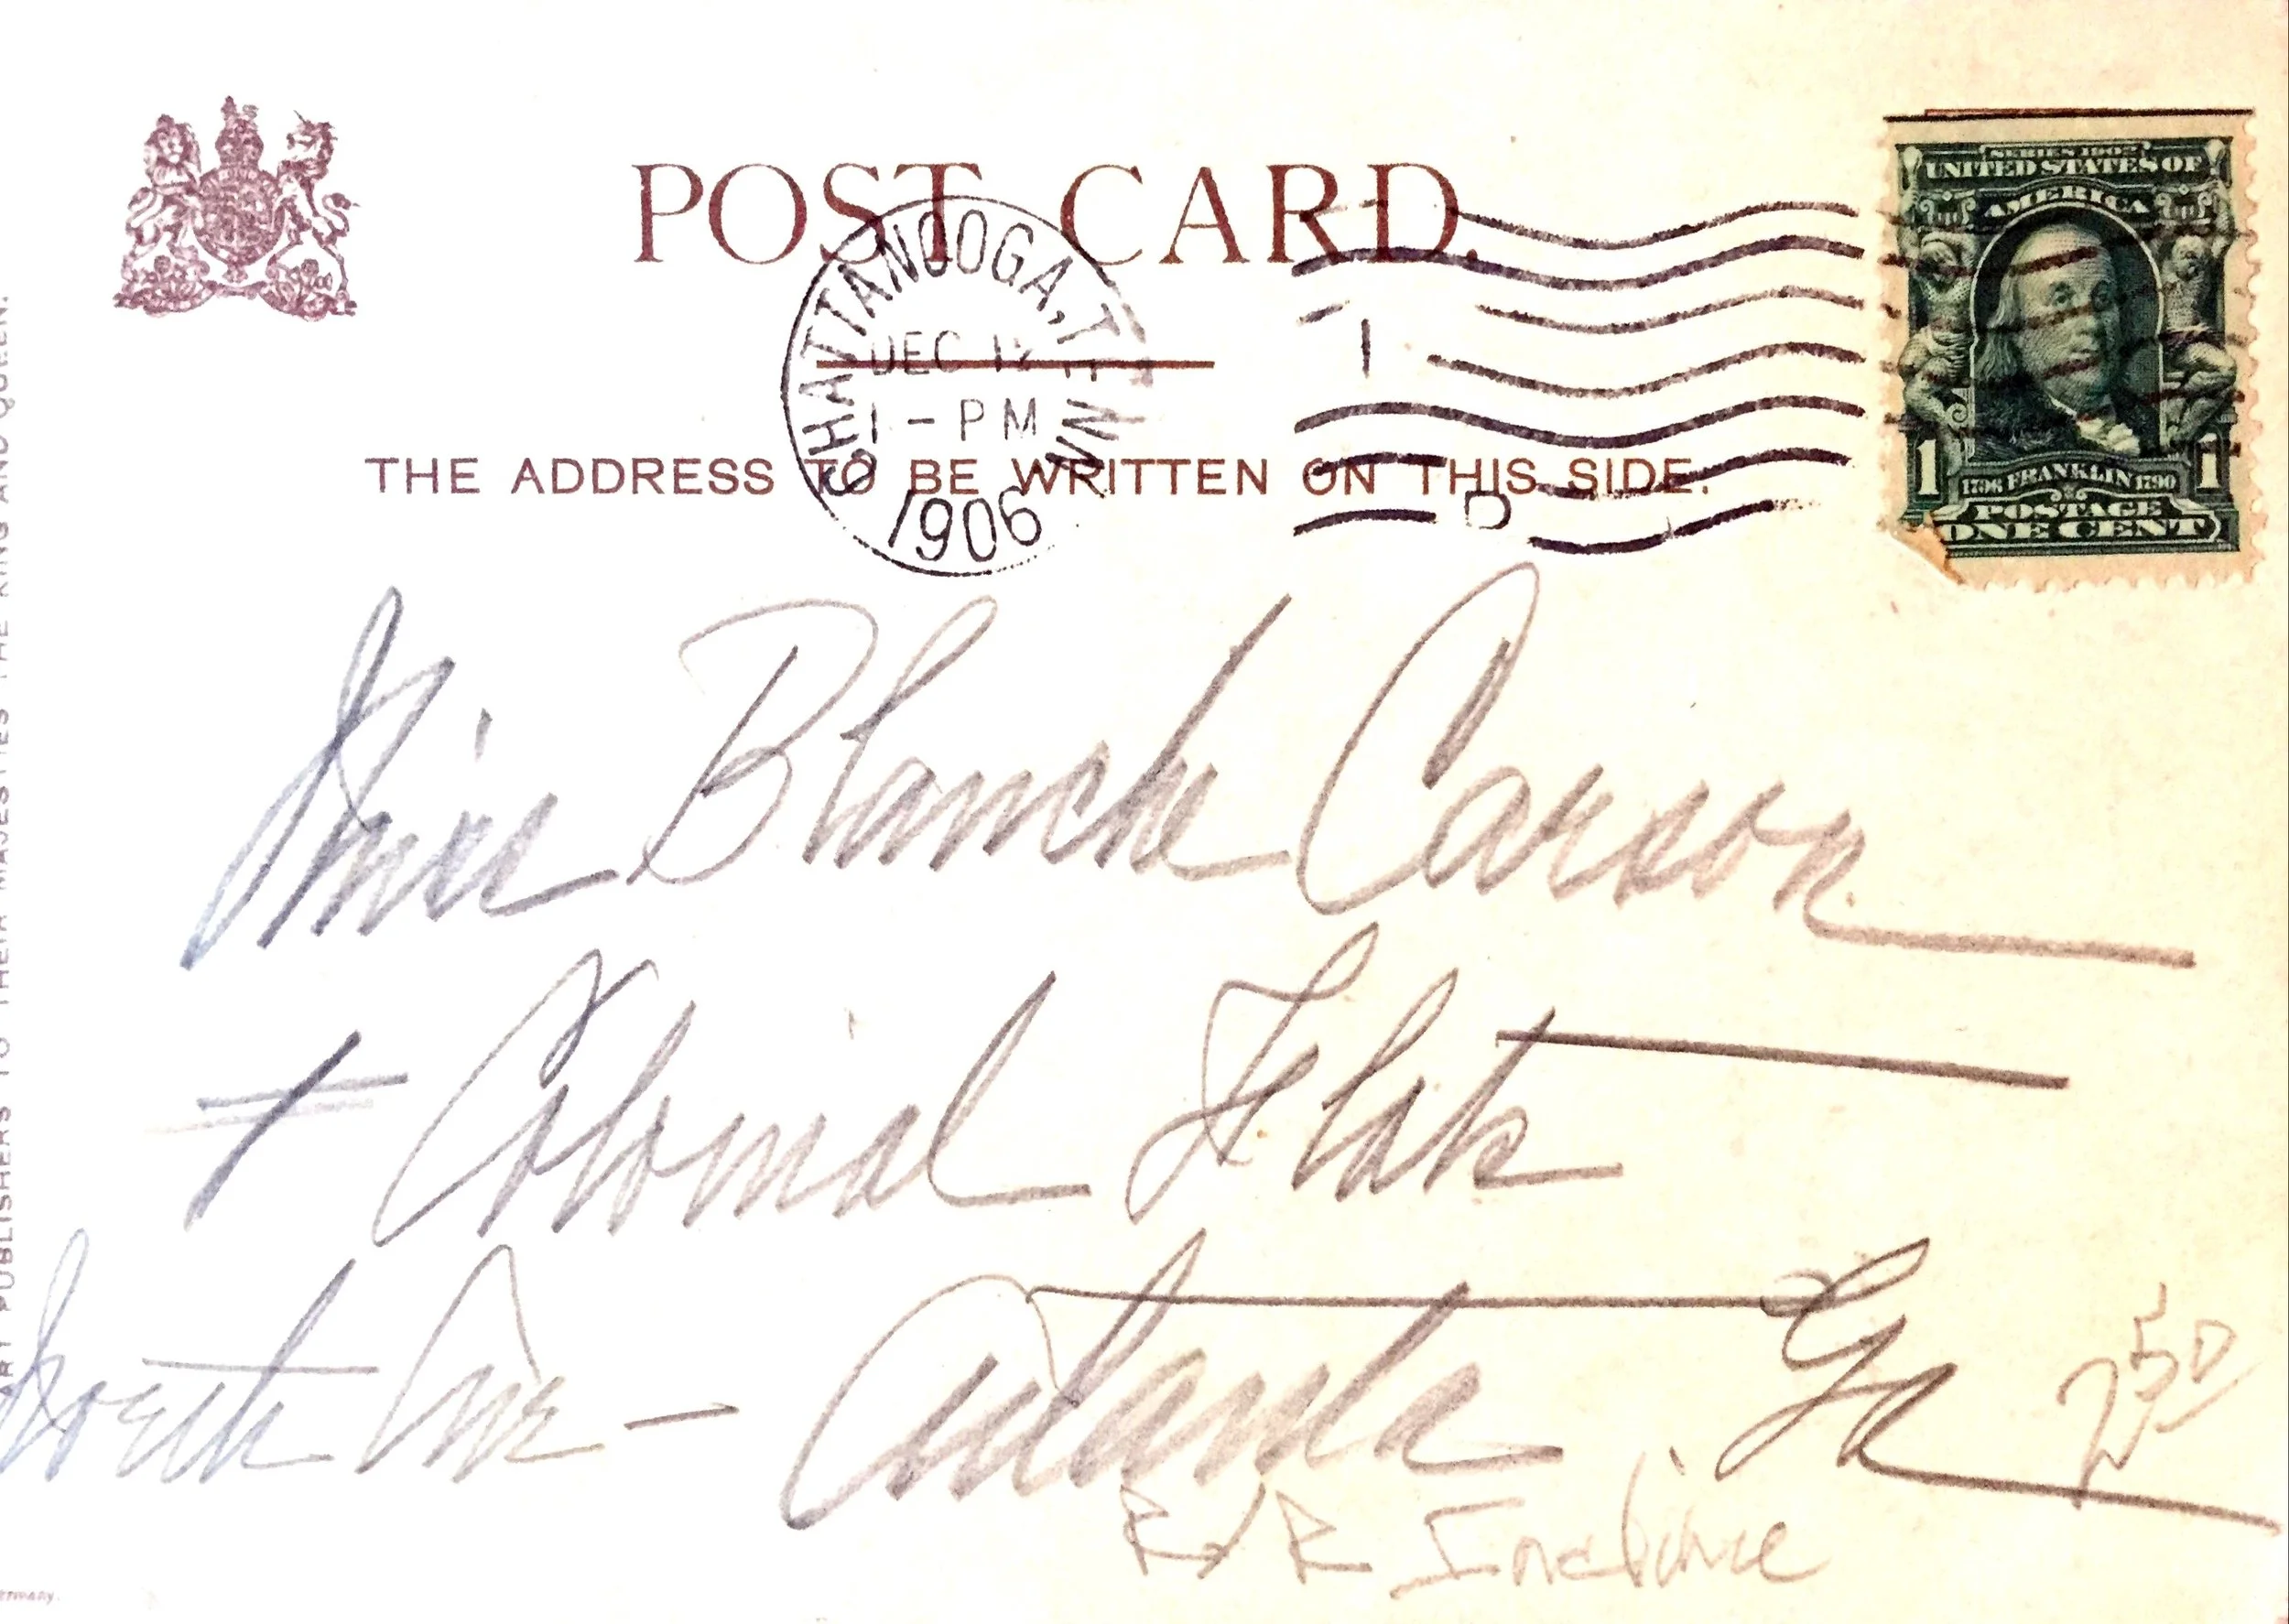 POST CARD.
CHATTANOOGA, TENN.
DEC 1
1 - PM
1906
1
D
THE ADDRESS TO BE WRITTEN ON THIS SIDE.
SERIES 1902
UNITED STATES OF
AMERICA
1706 FRANKLIN 1790
1 1
POSTAGE
ONE CENT
Miss Blanche Carson
Colonial Flats
North Ave - Atlanta Ga
2 50
R/R Incline
ART PUBLISHERS TO THEIR MAJESTIES THE KING AND QUEEN.
ermany.